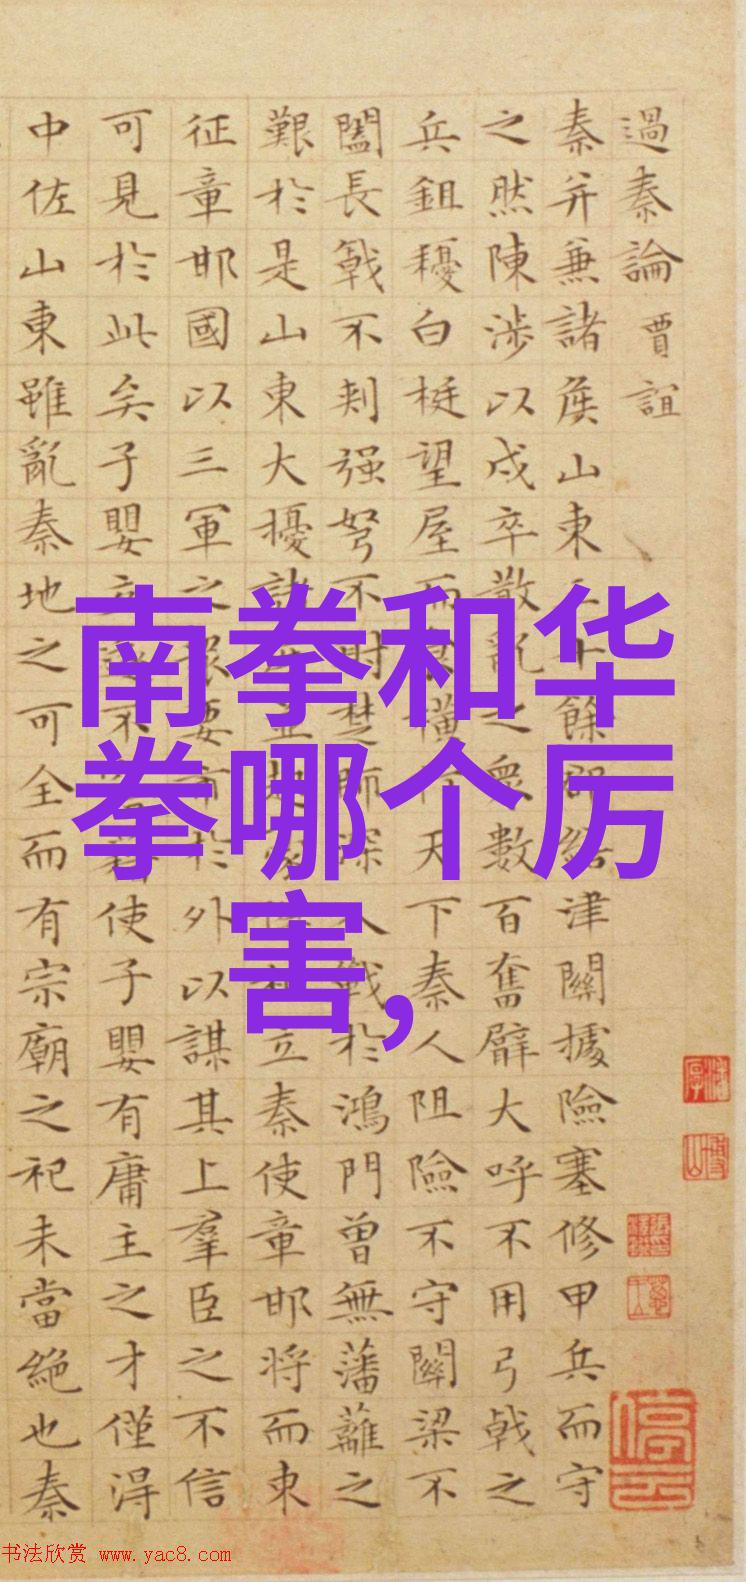 過秦論 賈誼
秦并兼諸侯山東三十餘郡繕津關據險塞修甲兵而守
之然陳涉以戍卒散亂之衆數百奮臂大呼不用弓戟之
兵鉏耰白梃望屋而橫行天下秦人阻險不守關梁不
闔長戟不刺强弩不射楚師深入戰於鴻門曾無藩蘺之
艱於是山東大擾諸立秦使章邯將而東
征章邯國以三軍之衆要市於外以謀其上羣臣之不信
可見於此矣子嬰立遂不使子嬰有庸主之才僅得
中佐山東雖亂秦地之可全而有宗廟之祀未當絶也秦
南拳和华
拳哪个厉
害,
书法欣赏 www.yac8.com